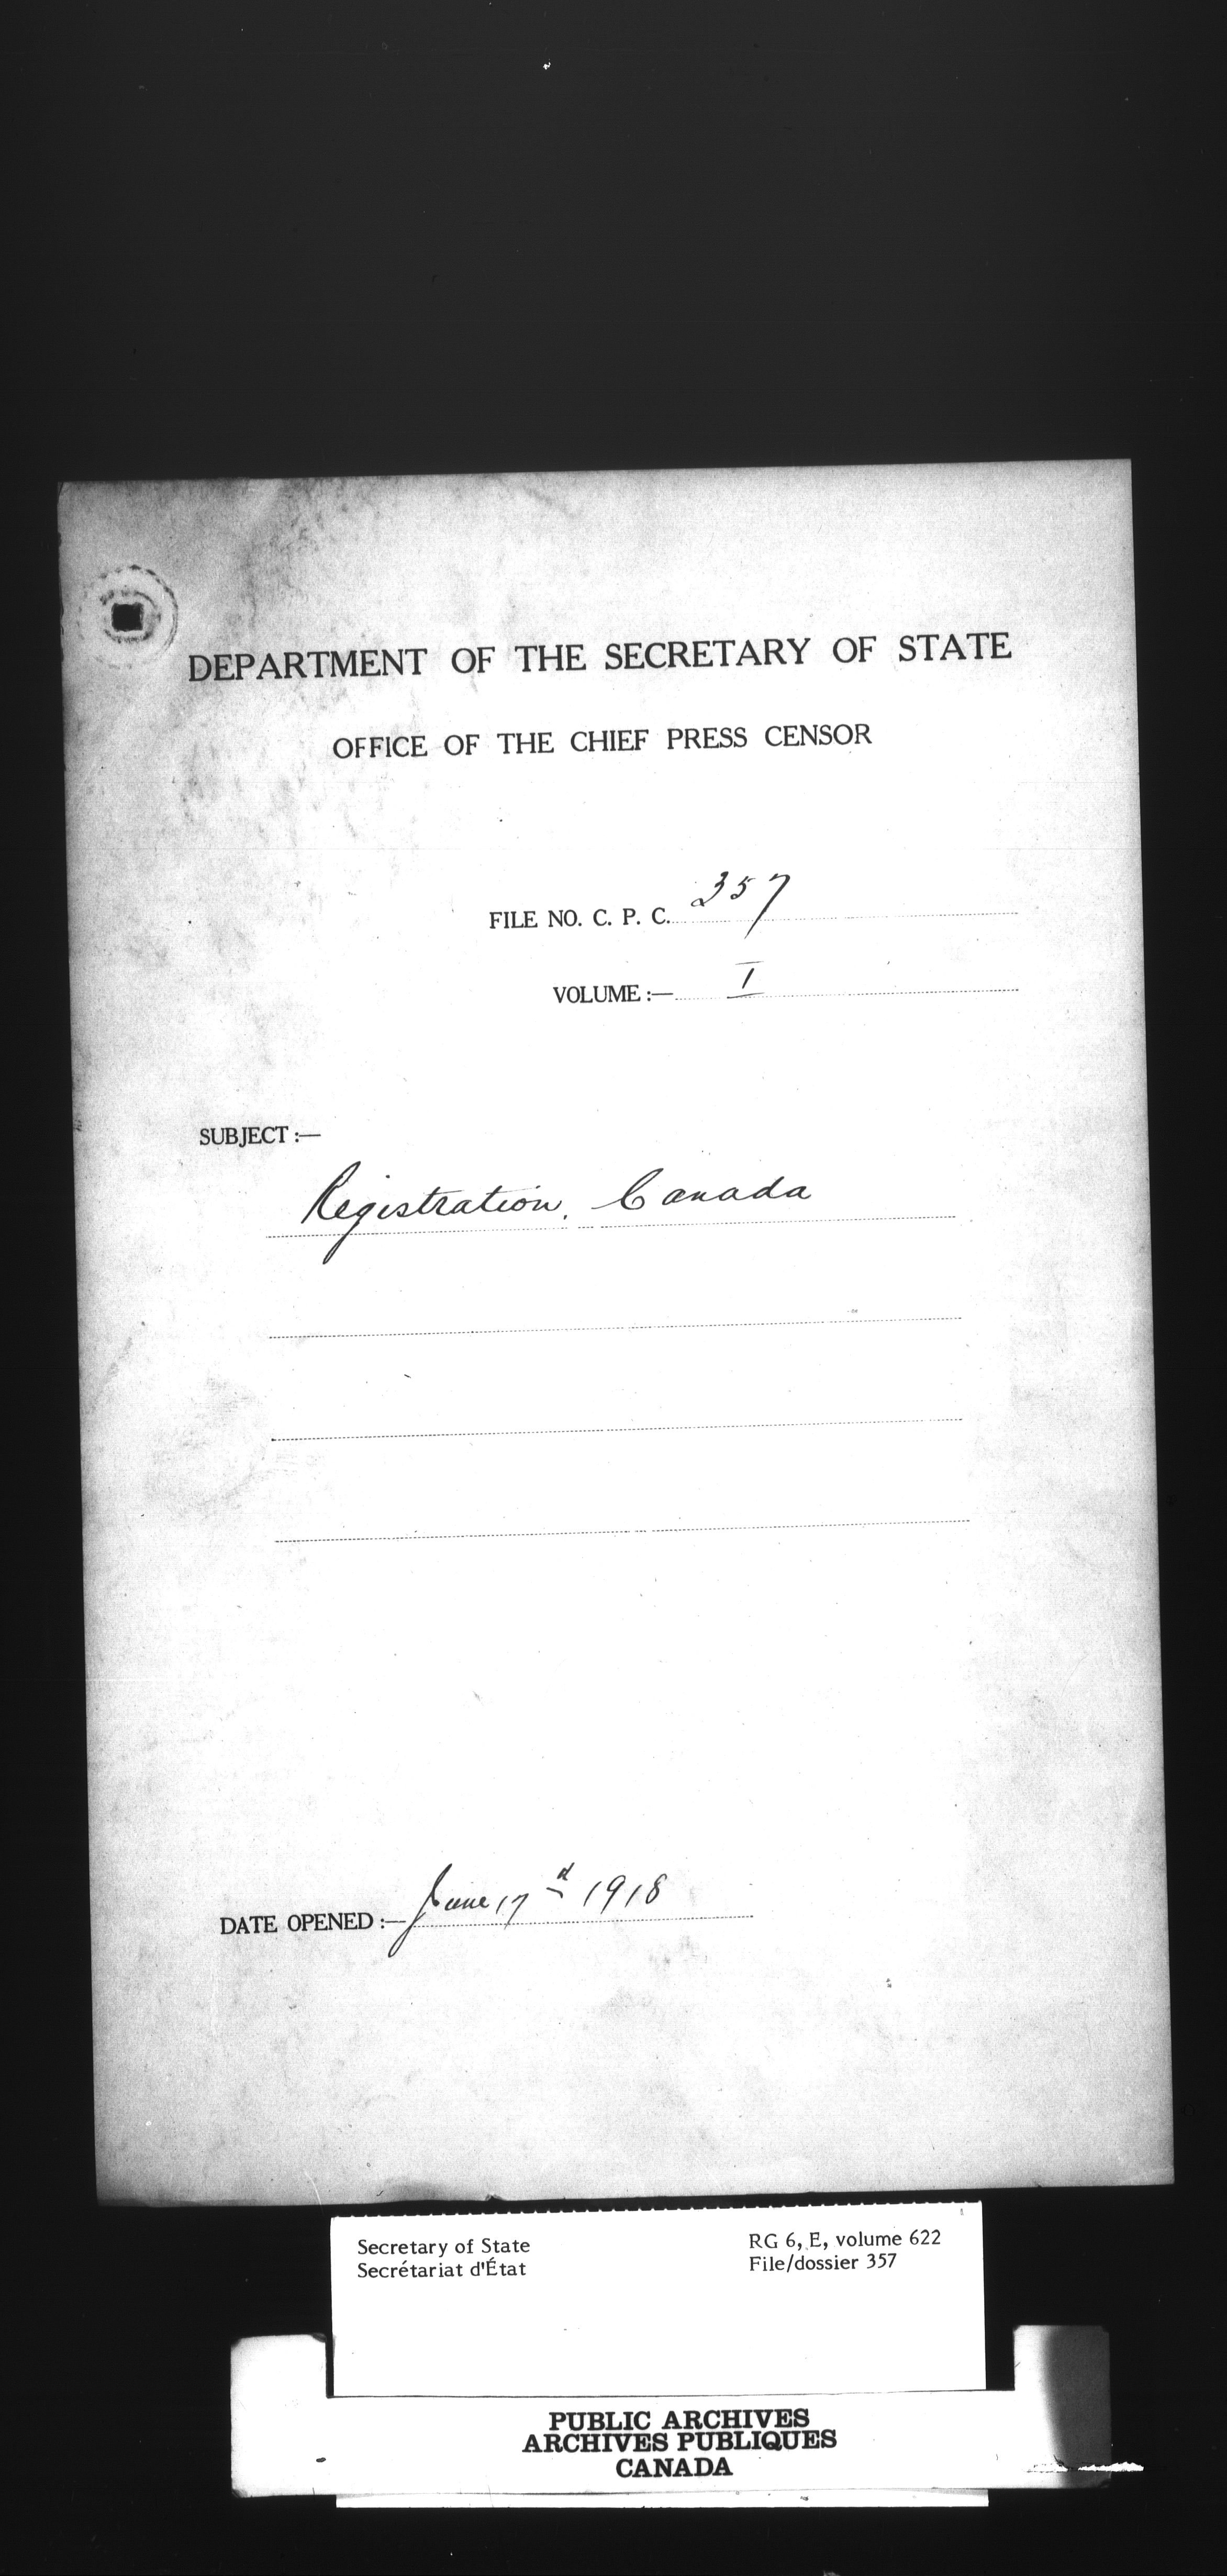 DEPARTMENT OF THE SECRETARY OF STATE
OFFICE OF THE CHIEF PRESS CENSOR
FILE NO. C. P. C. 357
VOLUME :— I
SUBJECT :—
Registration. Canada
DATE OPENED :— June 17d 1918
Secretary of State
Secrétariat d'État
RG 6, E, volume 622
File/dossier 357
PUBLIC ARCHIVES
ARCHIVES PUBLIQUES
CANADA